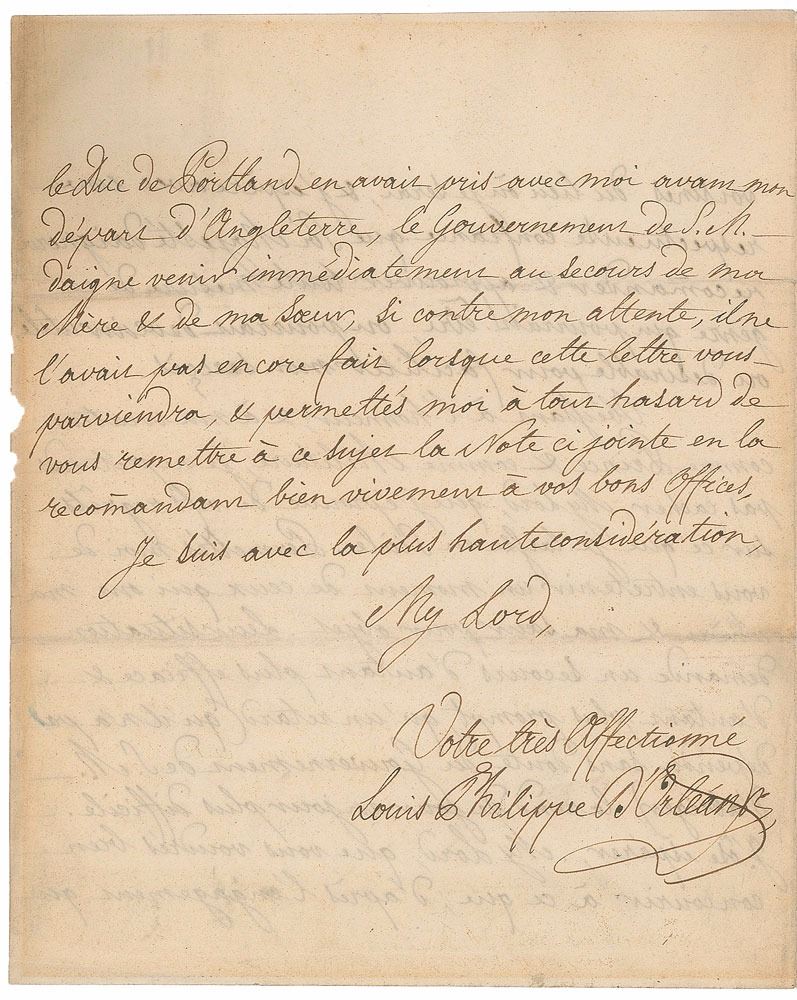 le Duc de Portland en avait pris avec moi avant mon
départ d'Angleterre, le Gouvernement de S. M. —
daigne venir immédiatement au secours de ma
Mère & de ma Sœur, si contre mon attente, il ne
l'avait pas encore fait lorsque cette lettre vous
parviendra, & permettés moi à tout hasard de
vous remettre à ce sujet la Note ci jointe en la
recomandant bien vivement à vos bons Offices,
Je suis avec la plus haute considération,
My Lord,
Votre très Affectionné
Louis Philippe D'Orléans,